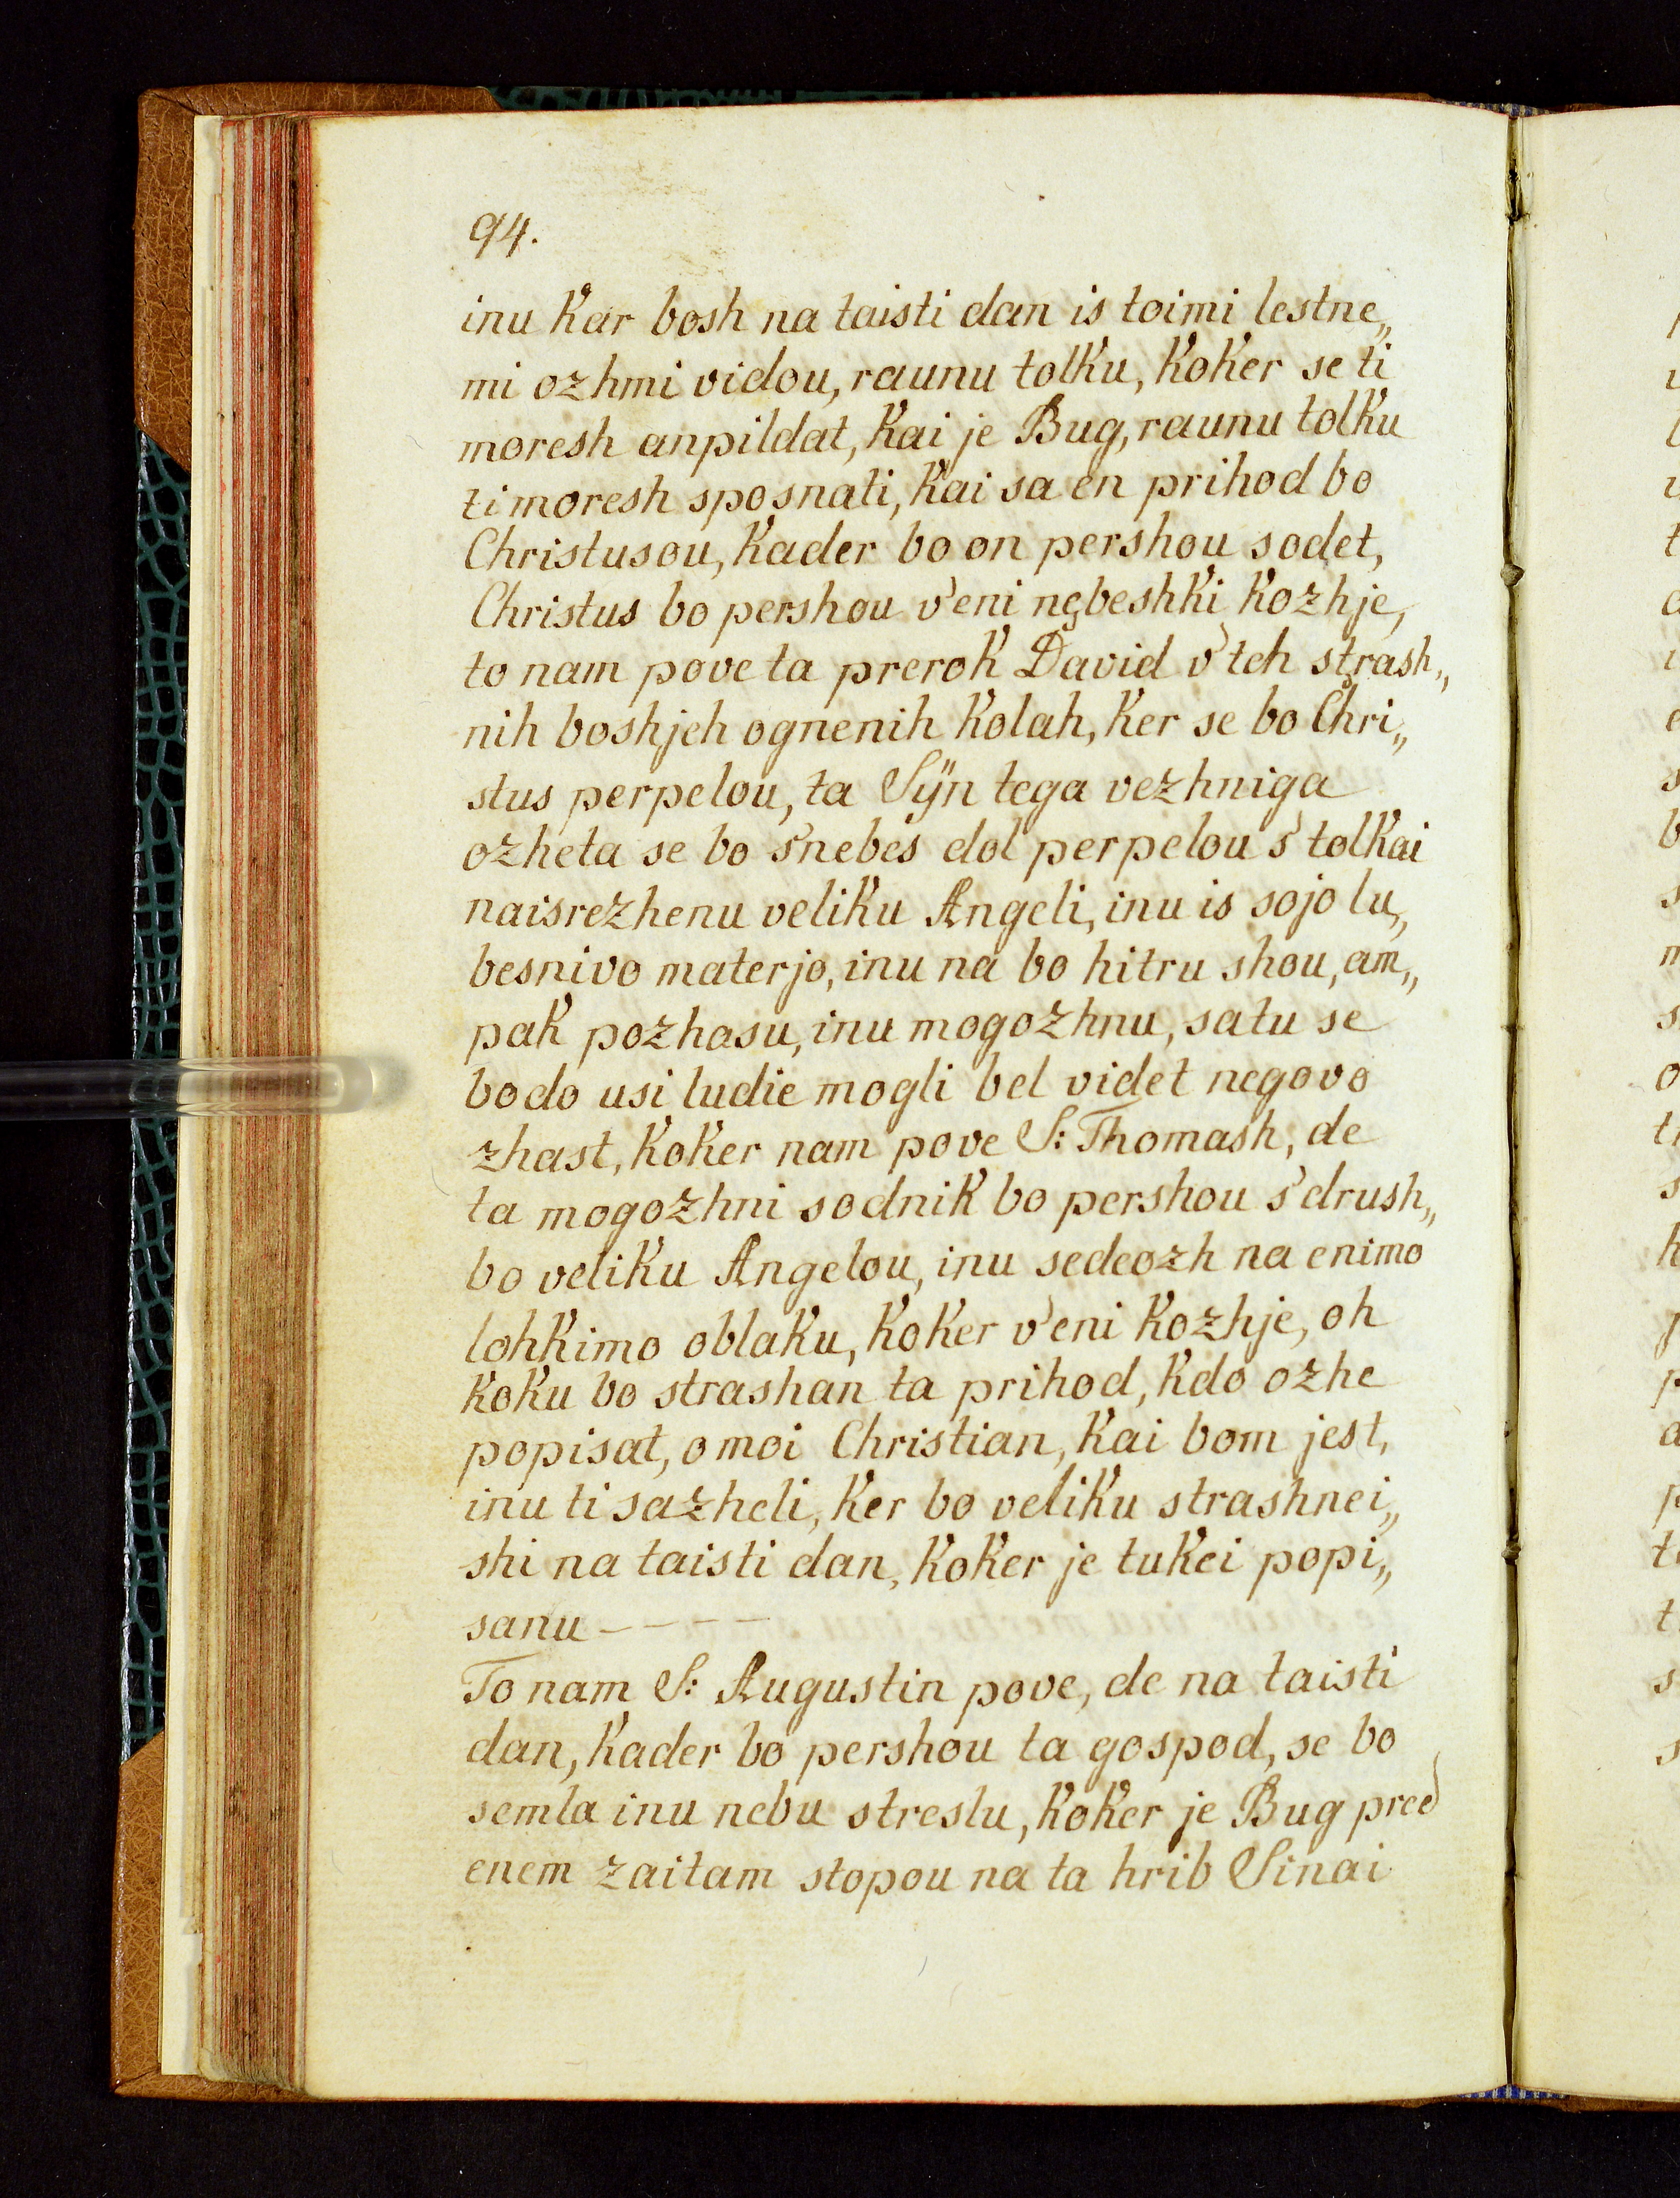 94.
inu kar bosh na taisti dan is toimi lestne„
mi ozhmi vidou, raunu tolku, koker se ti
moresh anpildat, kai je Bug, raunu tolku
ti moresh sposnati, kai sa en prihod bo
Christusou, kader bo on pershou sodet,
Christus bo pershou v'eni nebeshki kozhje,
to nam pove ta prerok David v'teh strash„
nih boshjeh ognenih kolah, ker se bo Chri„
stus perpelou, ta Sÿn tega vezhniga
ozheta se bo s'nebes dol perpelou s'tolkai
naisrezhenu veliku Angeli, inu is sojo lu„
besnivo materjo, inu na bo hitru shou, am„
pak pozhasu, inu mogozhnu, satu se
bodo usi ludie mogli bel videt negovo
zhast, koker nam pove S: Thomash, de
ta mogozhni sodnik bo pershou s'drush„
bo veliku Angelou, inu sedeozh na enimo
lohkimo oblaku, koker v'eni kozhje, oh
koku bo strashan ta prihod, kdo ozhe
popisat, o moi Christian, kai bom jest,
inu ti sazheli, ker bo veliku strashnei„
shi na taisti dan, koker je tukei popi„
sanu - - - -
To nam S: Augustin pove, de na taisti
dan, kader bo pershou ta gospod, se bo
semla inu nebu streslu, koker je Bug pred
enem zaitam stopou na ta hrib Sinai